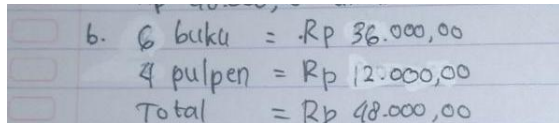 b. 6 buku = Rp 36.000,00
4 pulpen = Rp 12.000,00
Total = Rp 48.000,00